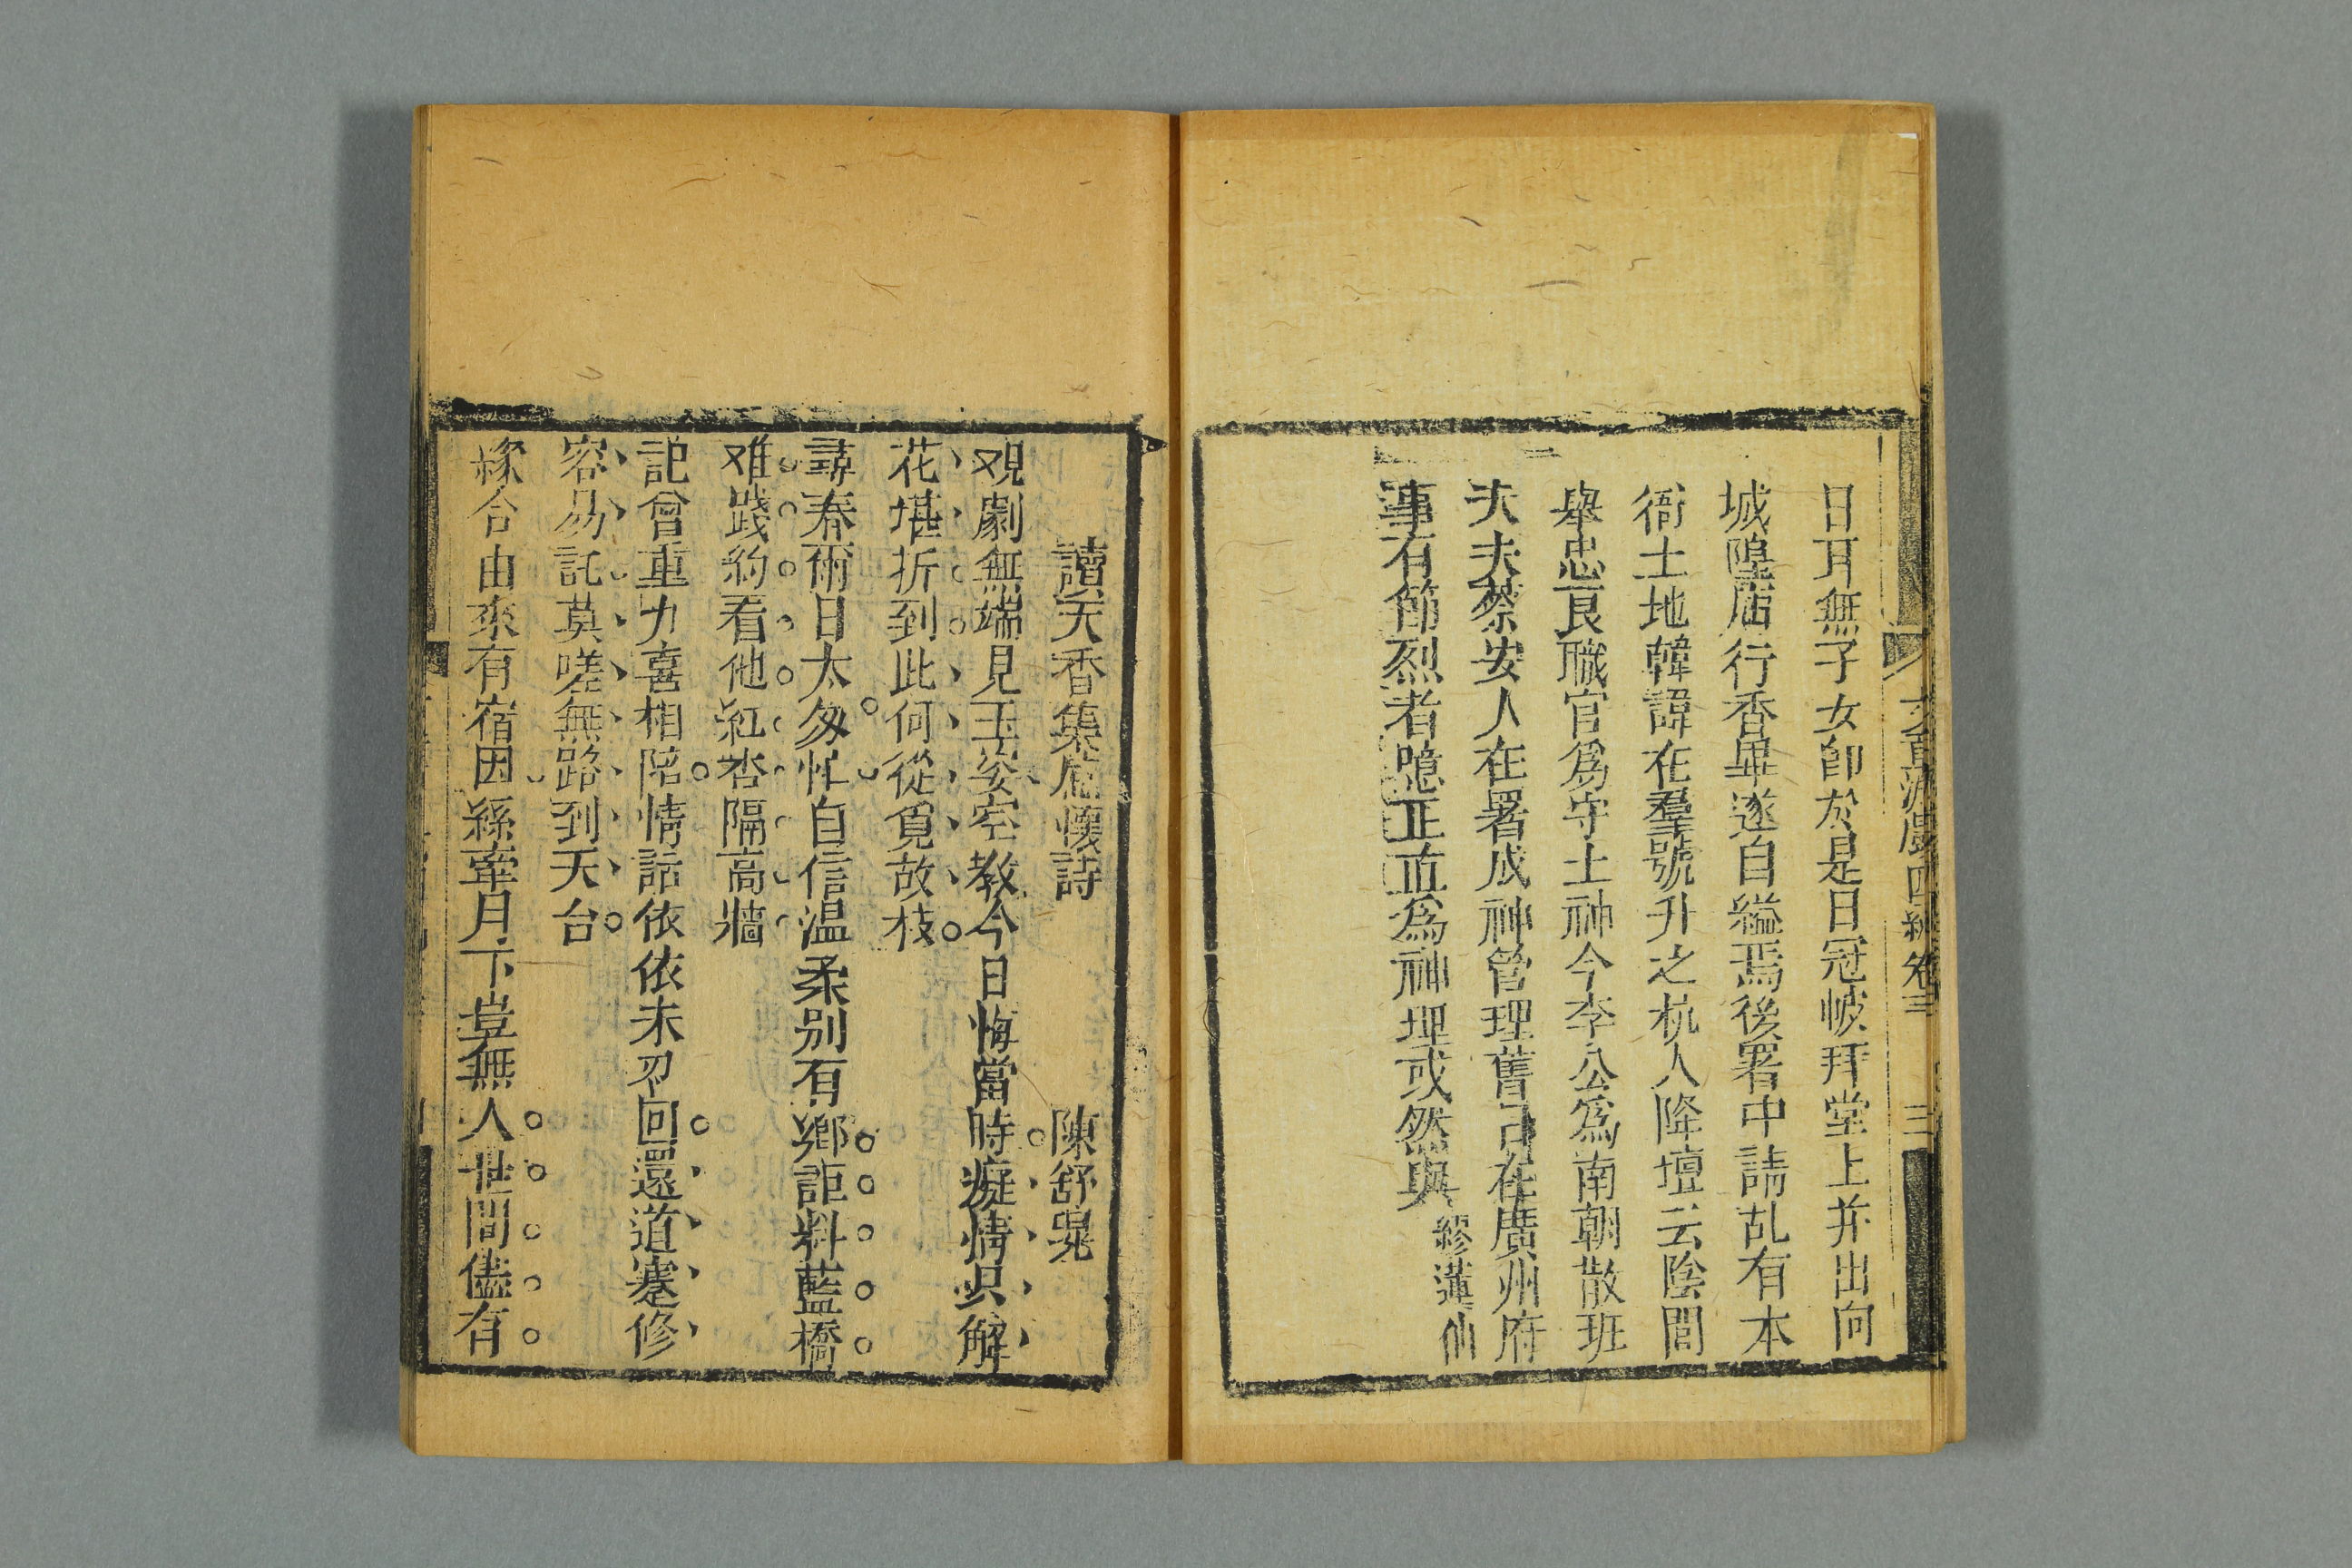 文章游戲四編卷三 三
日耳無子女師於是日冠帔拜堂上并出向
城隍庙行香畢遂自縊焉後署中請乩有本
衙土地韓諱在羣號升之杭人降壇云陰間
舉忠良職官爲守土神今李公爲南朝散班
大夫蔡安人在署成神管理舊居在廣州府
事有節烈者聰正直爲神理或然與 繆蓮仙
讀天香集感懷詩 陳舒㫤
覌劇無端見玉姿空教今日悔當時癡情只解
花堪折到此何從覓故枝
尋春爾日太匆忙自信温柔别有鄉詎料藍橋
难踐約看他紅杏隔高牆
記曾重力喜相陪情話依依未忍回還道蹇修
容易託莫嗟無路到天台
緣合由來有宿因絲牽月下豈無人世間儘有